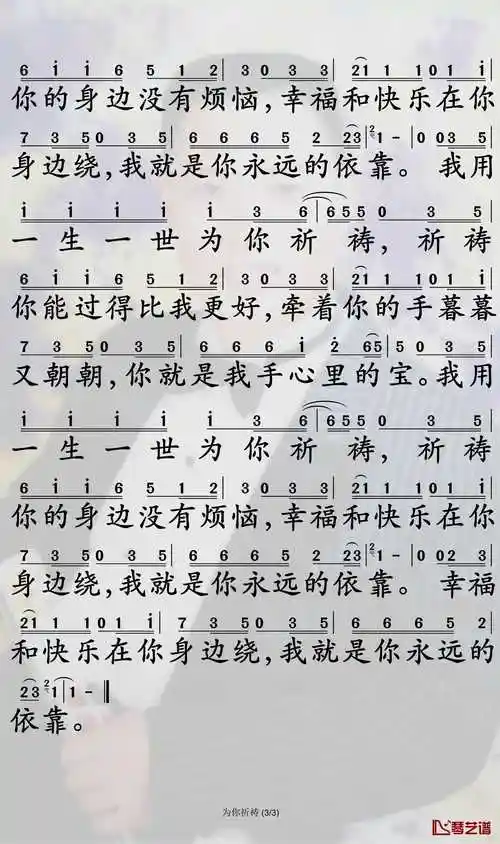 6 i i 6 5 1 2 | 3 0 3 3 | 2 1 1 1 0 1 i |
你的身边没有烦恼,幸福和快乐在你
7 3 5 0 3 5 | 6 6 6 6 5 2 2 3 | 2 1 - | 0 0 3 5 |
身边绕,我就是你永远的依靠。 我用
i i i i | i 3 6 | 6 5 5 0 3 5 |
一生一世为你祈祷,祈祷
6 i i 6 5 1 2 | 3 0 3 3 | 2 1 1 1 0 1 i |
你能过得比我更好,牵着你的手暮暮
7 3 5 0 3 5 | 6 6 6 i 2 6 5 | 5 0 3 5 |
又朝朝,你就是我手心里的宝。我用
i i i i | i 3 6 | 6 5 5 0 3 5 |
一生一世为你祈祷,祈祷
6 i i 6 5 1 2 | 3 0 3 3 | 2 1 1 1 0 1 i |
你的身边没有烦恼,幸福和快乐在你
7 3 5 0 3 5 | 6 6 6 6 5 2 2 3 | 2 1 - | 0 0 2 3 |
身边绕,我就是你永远的依靠。 幸福
2 1 1 1 0 1 i | 7 3 5 0 3 5 | 6 6 6 6 5 2 |
和快乐在你身边绕,我就是你永远的
2 3 2 1 | 1 - ‖
依靠。
为你祈祷 (3/3)
琴艺谱